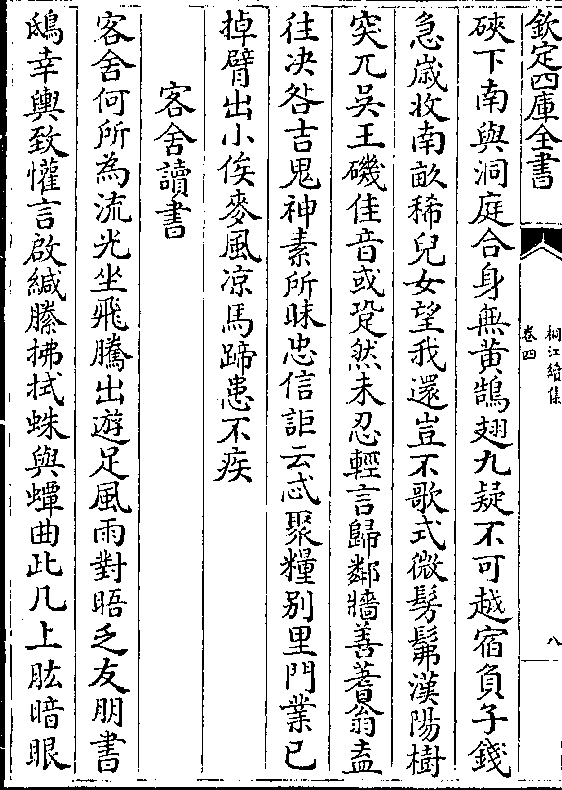 欽定四庫全書
桐江續集
卷四
八
硤下南與洞庭合身無黄鵠翅九疑不可越宿負子錢
急歳收南畝稀兒女望我還豈不歌式微髣髴漢陽樹
突兀吳王磯佳音或跫然未忍輕言歸鄰牆善蓍翁盍
往决咎吉鬼神素所昧忠信詎云忒聚糧别里門業已
掉臂出小俟麥風凉馬蹄患不疾
客舍讀書
客舍何所為流光坐飛騰出遊足風雨對晤乏友朋書
鴟幸輿致懽言啟緘縢拂拭蛛與蟫曲此几上肱暗眼